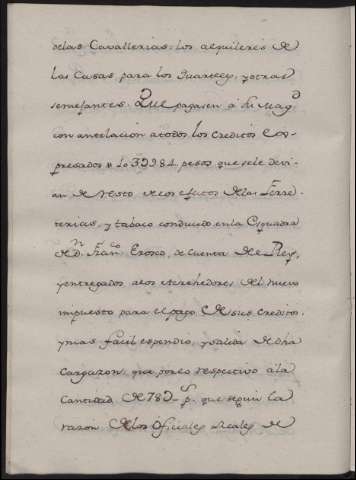 delas Cavallerias: los alquileres de
las Casas para los Quarteles, y otras
semejantes. Que pagasen á Su Magd
con antelacion atodos los Creditos Ex-
presados los pesos que sele devi-
an de resto de los efectos delas Ferre-
terias, y tabaco conducido en la Esquadra
de Dn Franco de Cuenta del Rey,
y entregados alos Acrehedores del nuevo
impuesto para el pago desus Creditos,
y mas facil espendio, y salida de dha
Cargazon, que por lo respectivo ála
Cantidad de ps que segun la
razon delos Oficiales Reales de